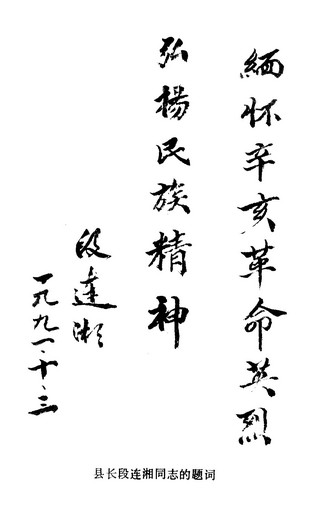 缅怀辛亥革命英烈
弘杨民族精神
段连湘
一九九一·十·三
县长段连湘同志的题词